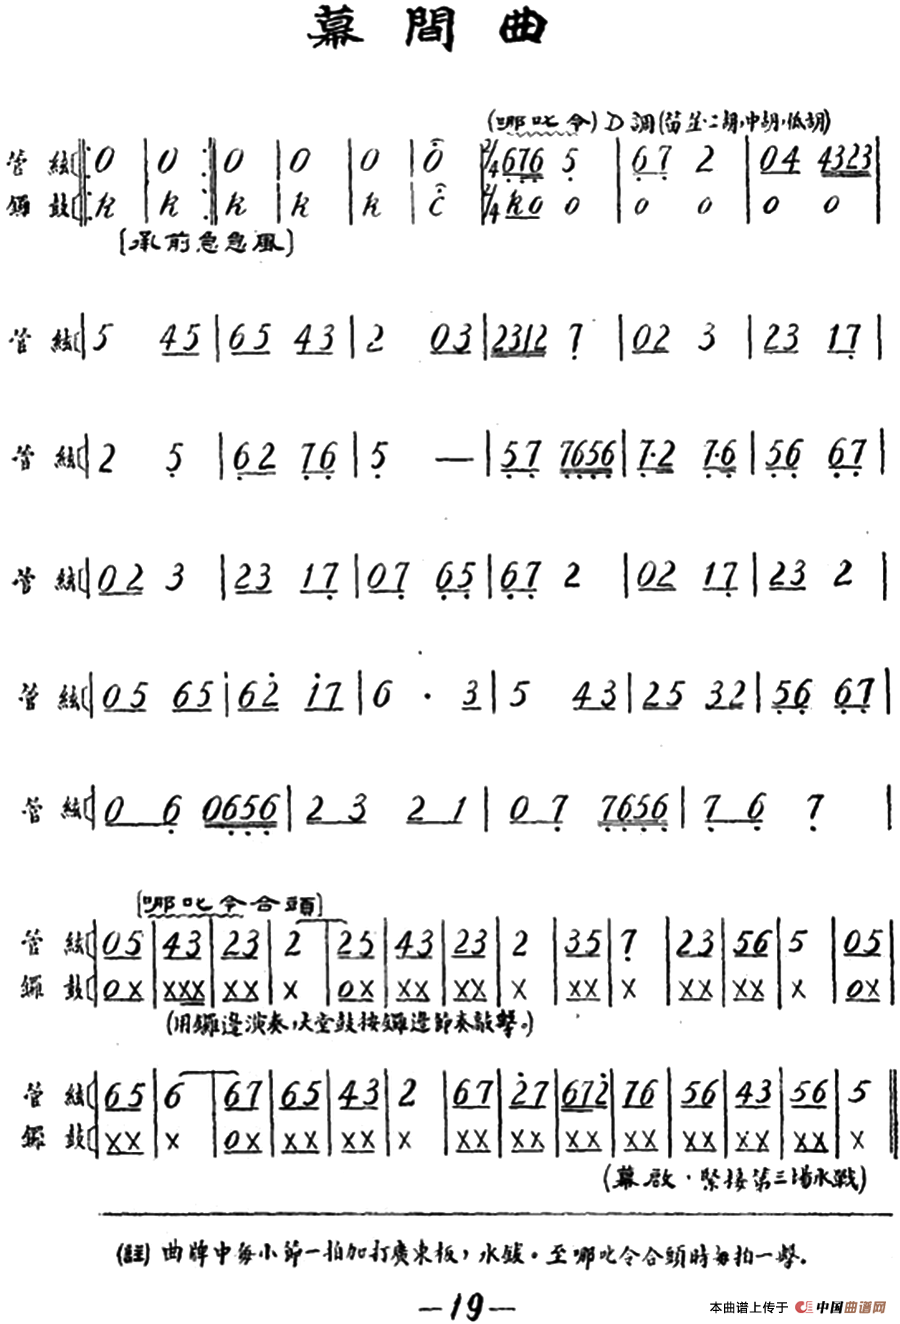 幕間曲
(哪吒令) D調(笛笙·二胡,中胡,低胡)
管絃 0 | 0 | 0 | 0 | 0 | 0 | 2/4 676 5 | 67 2 | 04 4323 |
鑼鼓 k | k | k | k | k | c | 2/4 k0 0 | 0 0 | 0 0 |
[承前急急風]
管絃 5 45 | 65 43 | 2 03 | 2312 7 | 02 3 | 23 17 |
管絃 2 5 | 62 76 | 5 — | 57 7656 | 7·2 7·6 | 56 67 |
管絃 02 3 | 23 17 | 07 65 | 67 2 | 02 17 | 23 2 |
管絃 05 65 | 62 17 | 6 · 3 | 5 43 | 25 32 | 56 67 |
管絃 06 0656 | 23 21 | 07 7656 | 76 7 |
[哪吒令合頭]
管絃 05 | 43 | 23 | 2 | 25 | 43 | 23 | 2 | 35 | 7 | 23 | 56 | 5 | 05 |
鑼鼓 0X | XXX | XX | X | 0X | XX | XX | X | XX | X | XX | XX | X | 0X |
(用鑼邊演奏,大堂鼓按鑼邊節奏敲擊。)
管絃 65 | 6 | 67 | 65 | 43 | 2 | 67 | 27 | 672 | 76 | 56 | 43 | 56 | 5
鑼鼓 XX | X | 0X | XX | XX | X | XX | XX | XX | XX | XX | XX | XX | X
(幕啟·緊接第三場水戰)
(註) 曲牌中每小節一拍加打廣東板,水鈸。至哪吒令合頭時每拍一擊.
—19—
本曲谱上传于 中国曲谱网